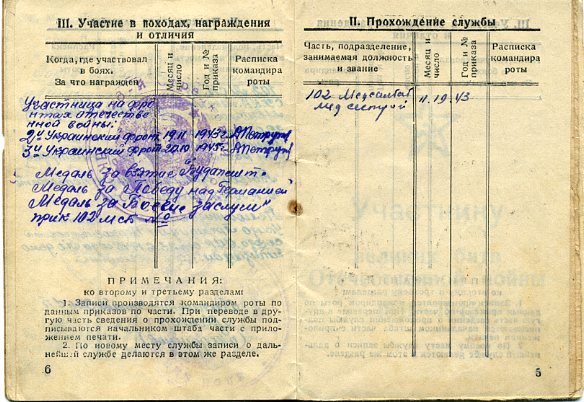 III. Участие в походах, награждения
и отличия
Когда, где участвовал
в боях.
За что награжден
Месяц и
число
Год и №
приказа
Расписка
командира
роты
Участница на фро
нтах отечестве
нной войны:
2й Украинский фронт 19.11 1943г
3й Украинский фронт 1945г
Медаль За взятие Будапешта
Медаль За Победу над Германией
Медаль За Боевые заслуги"
102 мсб №
ПРИМЕЧАНИЯ:
ко второму и третьему разделам:
1. Записи производятся командиром роты по
данным приказов по части. При переводе в дру-
гую часть сведения о прохождении службы под-
писываются начальником штаба части с прило-
жением печати.
2. По новому месту службы записи о даль-
нейшей службе делаются в этом же разделе.
6
II. Прохождение службы
Часть, подразделение,
занимаемая должность
и звание
Месяц и
число
Год и №
приказа
Расписка
командира
роты
102 Медсанбат
медсестрой
11.19.43
5